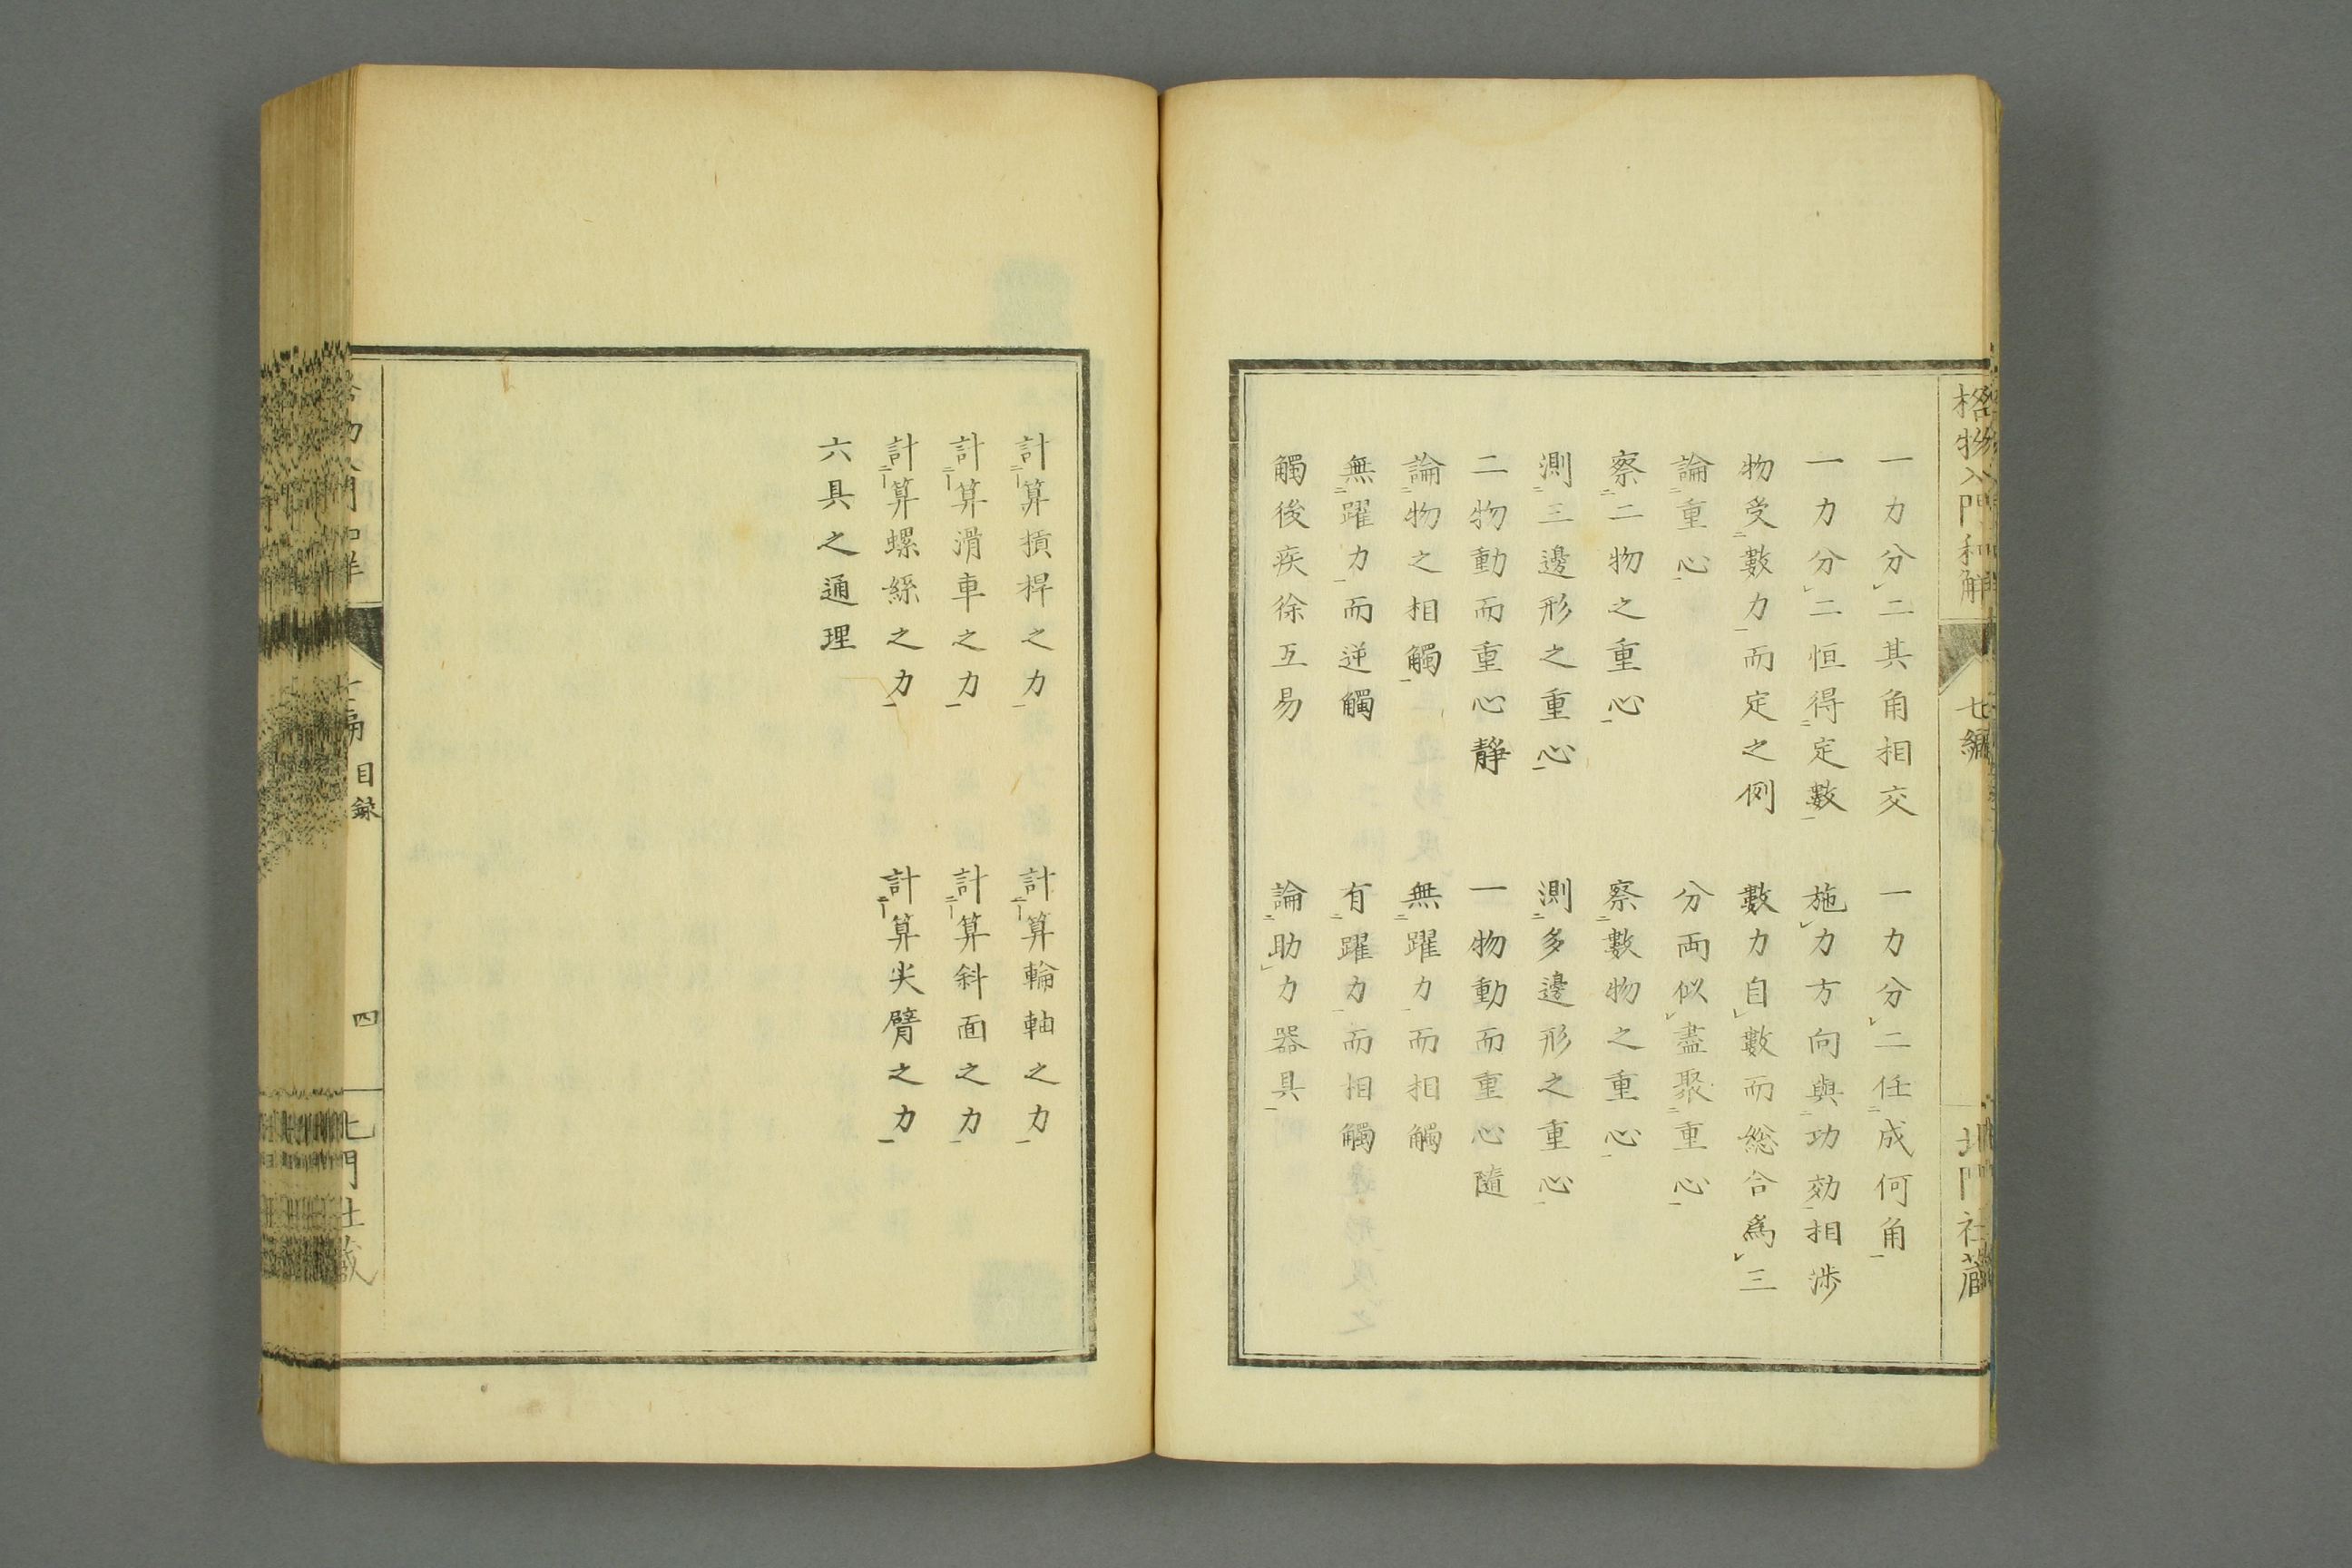 格物入門和解 七編 北門社蔵
一力分二其角相交
一力分二任成何角
一力分二恒得定數
施力方向與功効相渉
物受數力而定之例
數力自數而総合爲三
論重心
分両似盡聚重心
察二物之重心
察數物之重心
測三邊形之重心
測多邊形之重心
二物動而重心靜
一物動而重心隨
論物之相觸
無躍力而相觸
無躍力而逆觸
有躍力而相觸
觸後疾徐互易
論助力器具
計算槓桿之力
計算輪軸之力
計算滑車之力
計算斜面之力
計算螺絲之力
計算尖臂之力
六具之通理
目録 四